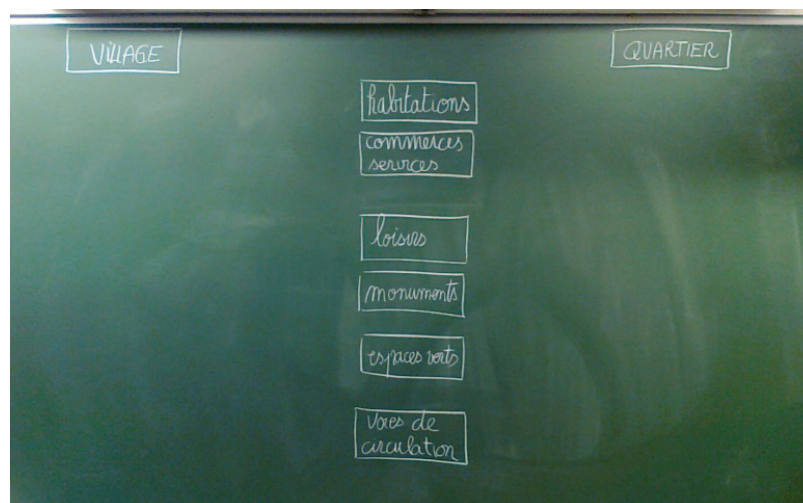 VILLAGE
QUARTIER
habitations
commerces
services
loisirs
monuments
espaces verts
voies de
circulation